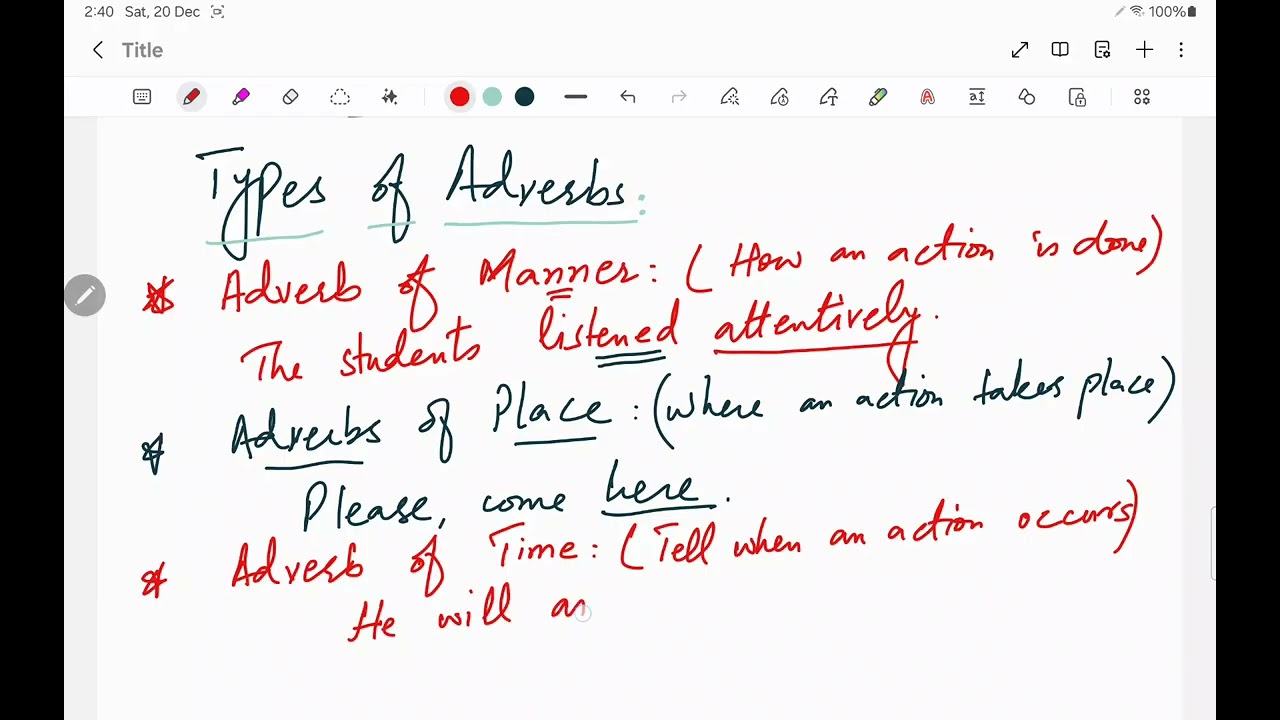 2:40 Sat, 20 Dec 100%
Title
Types of Adverbs:
* Adverb of Manner: (How an action is done)
The students listened attentively.
* Adverbs of Place: (where an action takes place)
Please, come here.
* Adverb of Time: (Tell when an action occurs)
He will